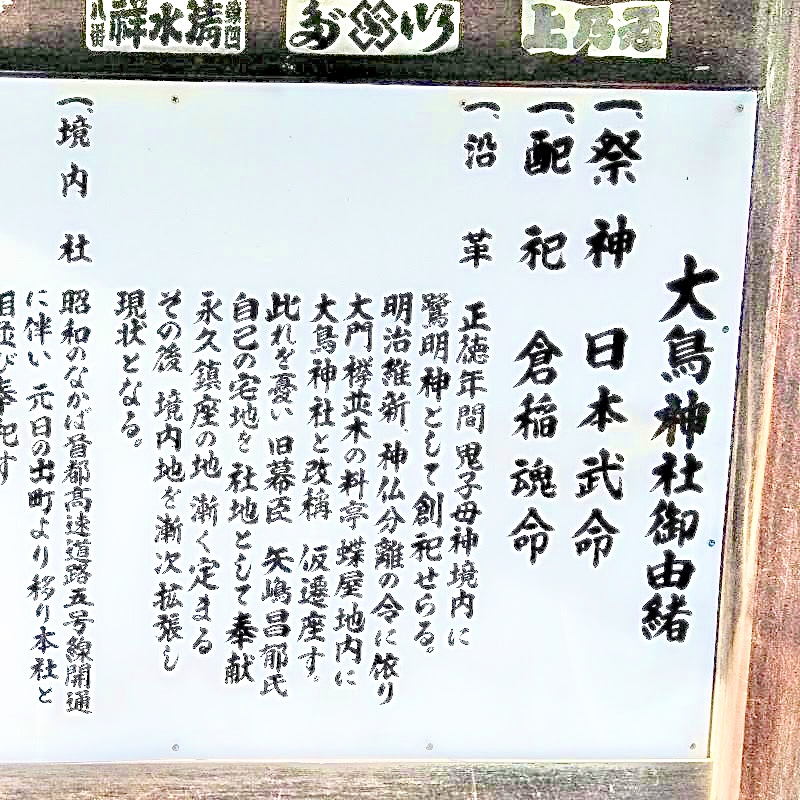 大鳥神社御由緒
一、祭神 日本武命
一、配祀 倉稲魂命
一、沿革 正徳年間 鬼子母神境内に
鷺明神として創祀せらる。
明治維新 神仏分離の令に依り
大門欅並木の料亭 蝶屋地内に
大鳥神社と改稱 仮遷座す。
此れを憂い 旧幕臣 矢嶋昌郁氏
自己の宅地を 社地として奉献
永久鎮座の地 漸く定まる
その後 境内地を 漸次拡張し
現状となる。
一、境内社 昭和のなかば首都高速道路五号線開通
に伴い 元日の出町より移り本社と
並び奉祀す